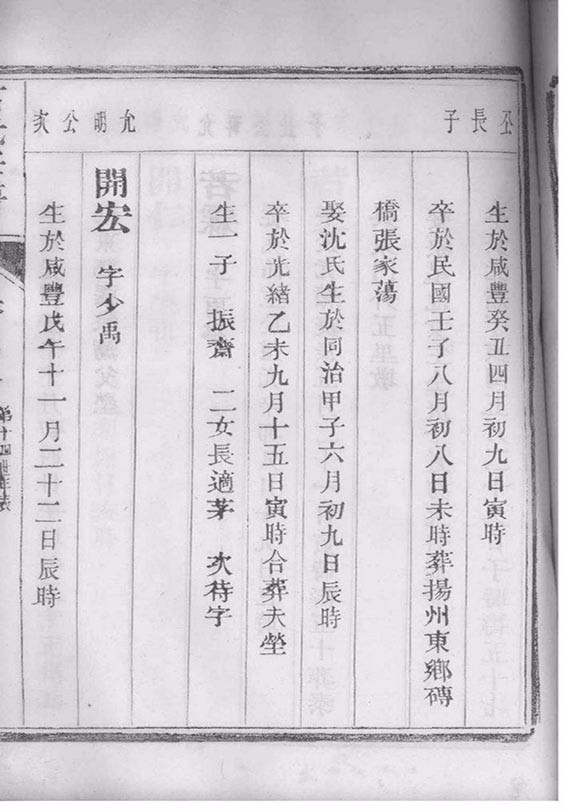 公長子
生於咸豐癸丑四月初九日寅時
卒於民國壬子八月初八日未時葬揚州東鄉磚
橋張家蕩
娶沈氏生於同治甲子六月初九日辰時
卒於光緒乙未九月十五日寅時合葬夫塋
生一子 振齋 二女長適茅 次待字
允明公次
開宏 字少禹
生於咸豐戊午十一月二十二日辰時
第十四世